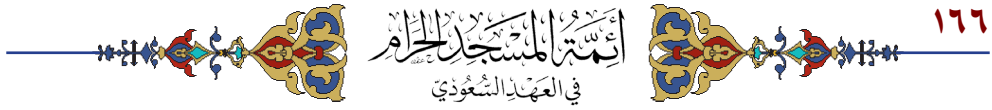 ١٦٦
أَئِمَّةُ المَسْجِدِ الحَرَامِ
فِي العَهْدِ السُّعُودِيّ